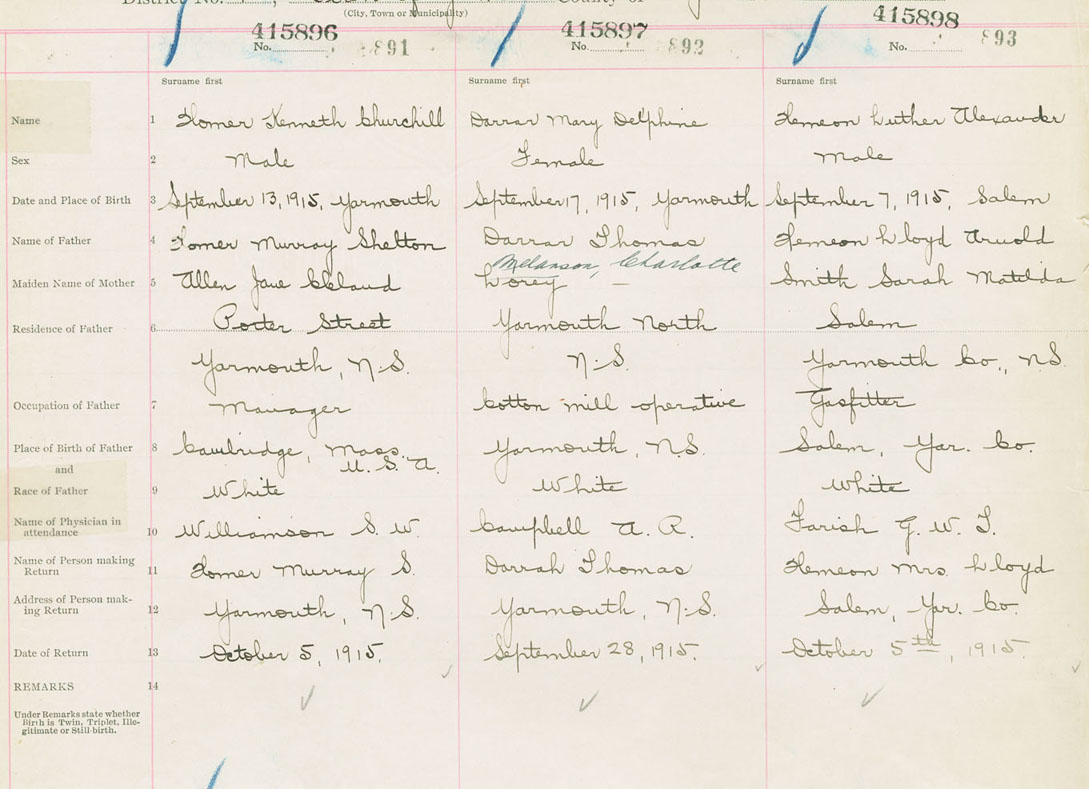 (City, Town or Municipality)
415896 415897 415898
No. 891 No. 892 No. 893
Surname first Surname first Surname first
Name 1 Homer Kenneth Churchill Darrar Mary Delphine Hemeon Luther Alexander
Sex 2 Male Female Male
Date and Place of Birth 3 September 13, 1915, Yarmouth September 17, 1915, Yarmouth September 7, 1915, Salem
Name of Father 4 Homer Murray Shelton Darrar Thomas Hemeon Lloyd Arnold
Melanson, Charlotte
Maiden Name of Mother 5 Allen Jane Cleland Lorey — Smith Sarah Matilda
Residence of Father 6 Porter Street Yarmouth North Salem
Yarmouth, N.S. N.S. Yarmouth Co., N.S.
Occupation of Father 7 Manager Cotton mill operative Gasfitter
Place of Birth of Father 8 Cambridge, Mass. Yarmouth, N.S. Salem, Yar. Co.
and U.S.A.
Race of Father 9 White White White
Name of Physician in
attendance 10 Williamson S. W. Campbell A. R. Farish G. W. T.
Name of Person making
Return 11 Homer Murray S. Darrah Thomas Hemeon Mrs. Lloyd
Address of Person mak-
ing Return 12 Yarmouth, N.S. Yarmouth, N.S. Salem, Yar. Co.
Date of Return 13 October 5, 1915. September 28, 1915. October 5th, 1915.
REMARKS 14
Under Remarks state whether
Birth is Twin, Triplet, Ille-
gitimate or Still-birth.